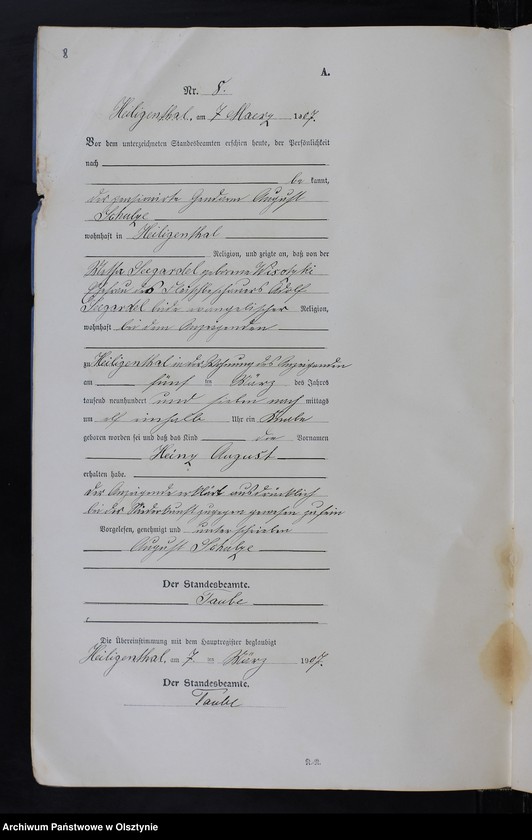 8
A.
Nr. 8.
Heiligenthal, am 7 Maerz 1907.
Vor dem unterzeichneten Standesbeamten erschien heute, der Persönlichkeit
nach
be kannt,
der pensionirte Gendarm August
Schulze
wohnhaft in Heiligenthal
Religion, und zeigte an, daß von der
Seegardel geborene Wisotzki
Ehefrau des Fleischbeschauers Adolf
Seegardel beide evangelischer Religion,
wohnhaft bei dem Anzeigenden
zu Heiligenthal in der Wohnung des Anzeigenden
am fünf ten März des Jahres
tausend neunhundert und sieben nach mittags
um elf einhalb Uhr ein Knabe
geboren worden sei und daß das Kind die Vornamen
Heinz August
erhalten habe.
Der Anzeigende erklärt ausdrücklich
bei der Niederkunft zugegen gewesen zu sein
Vorgelesen, genehmigt und unterschrieben
August Schulze
Der Standesbeamte.
Taube
Die Übereinstimmung mit dem Hauptregister beglaubigt
Heiligenthal, am 7 ten März 1907.
Der Standesbeamte.
Taube
Archiwum Państwowe w Olsztynie